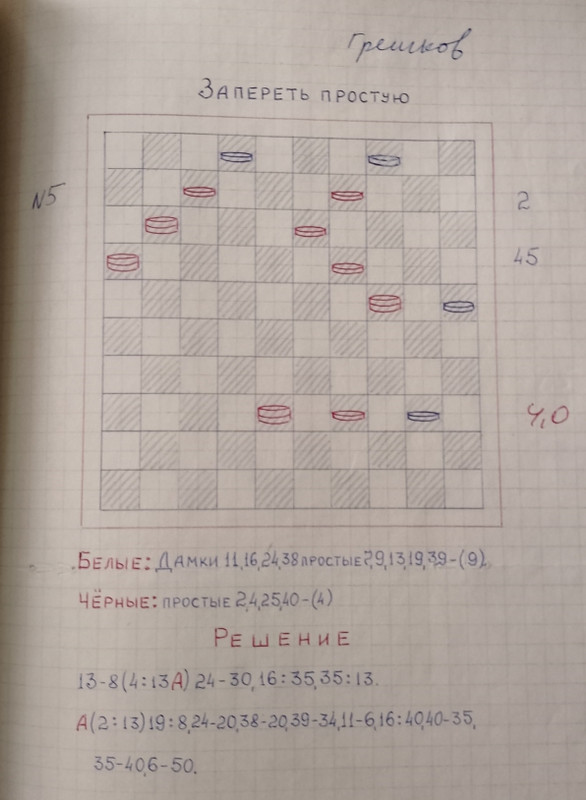 Грешков
ЗАПЕРЕТЬ ПРОСТУЮ
N5
2
45
4,0
БЕЛЫЕ: ДАМКИ 11,16,24,38 ПРОСТЫЕ 7,9,13,19,39-(9).
ЧЁРНЫЕ: ПРОСТЫЕ 2,4,25,40-(4)
РЕШЕНИЕ
13-8(4:13А) 24-30, 16:35, 35:13.
А(2:13)19:8, 24-20, 38-20, 39-34, 11-6, 16:40, 40-35,
35-40, 6-50.